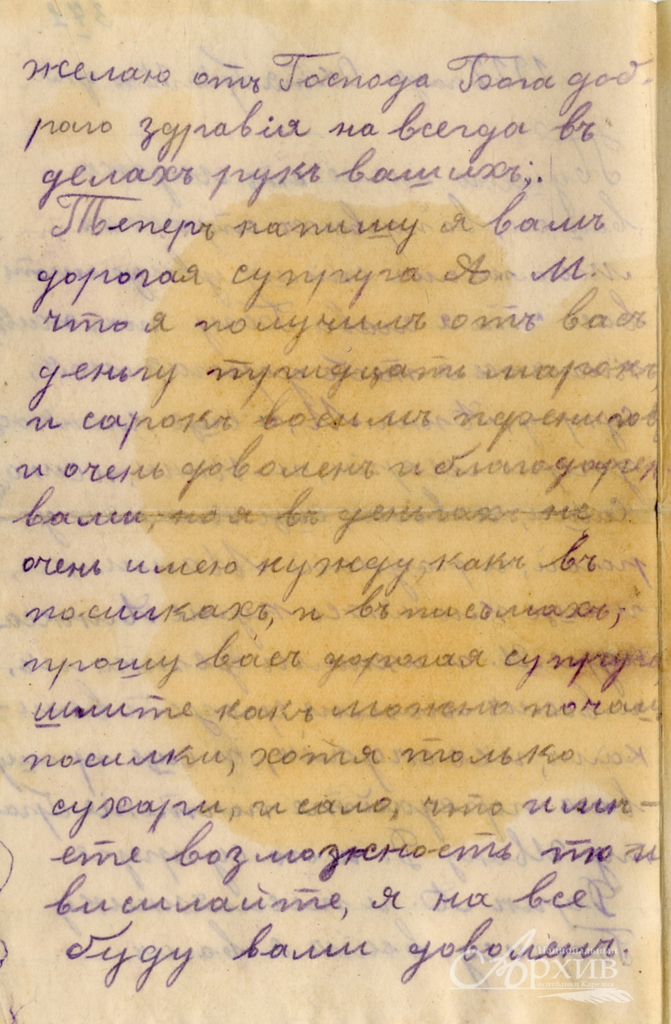 желаю отъ Господа Бога доб-
раго здравія на всегда въ
делахъ рукъ вашихъ;.
Теперъ напишу я вамъ
дорогая супруга А М.
что я получилъ отъ васъ
деньгу тридцать марокъ
и сарокъ восимъ пфенигов
и очень доволенъ и благодарен
вами, но я въ деньгах не
очень имею нужду, какъ въ
посилкахъ, и въ письмахъ;
прошу васъ дорогая супруга
шлите какъ можно почащ
посилки, хотя только
сухари, и сало, что име-
ете возможность то и
висилайте, я на все
буду вами доволенъ.
Национальный
Архив
Республики Карелия